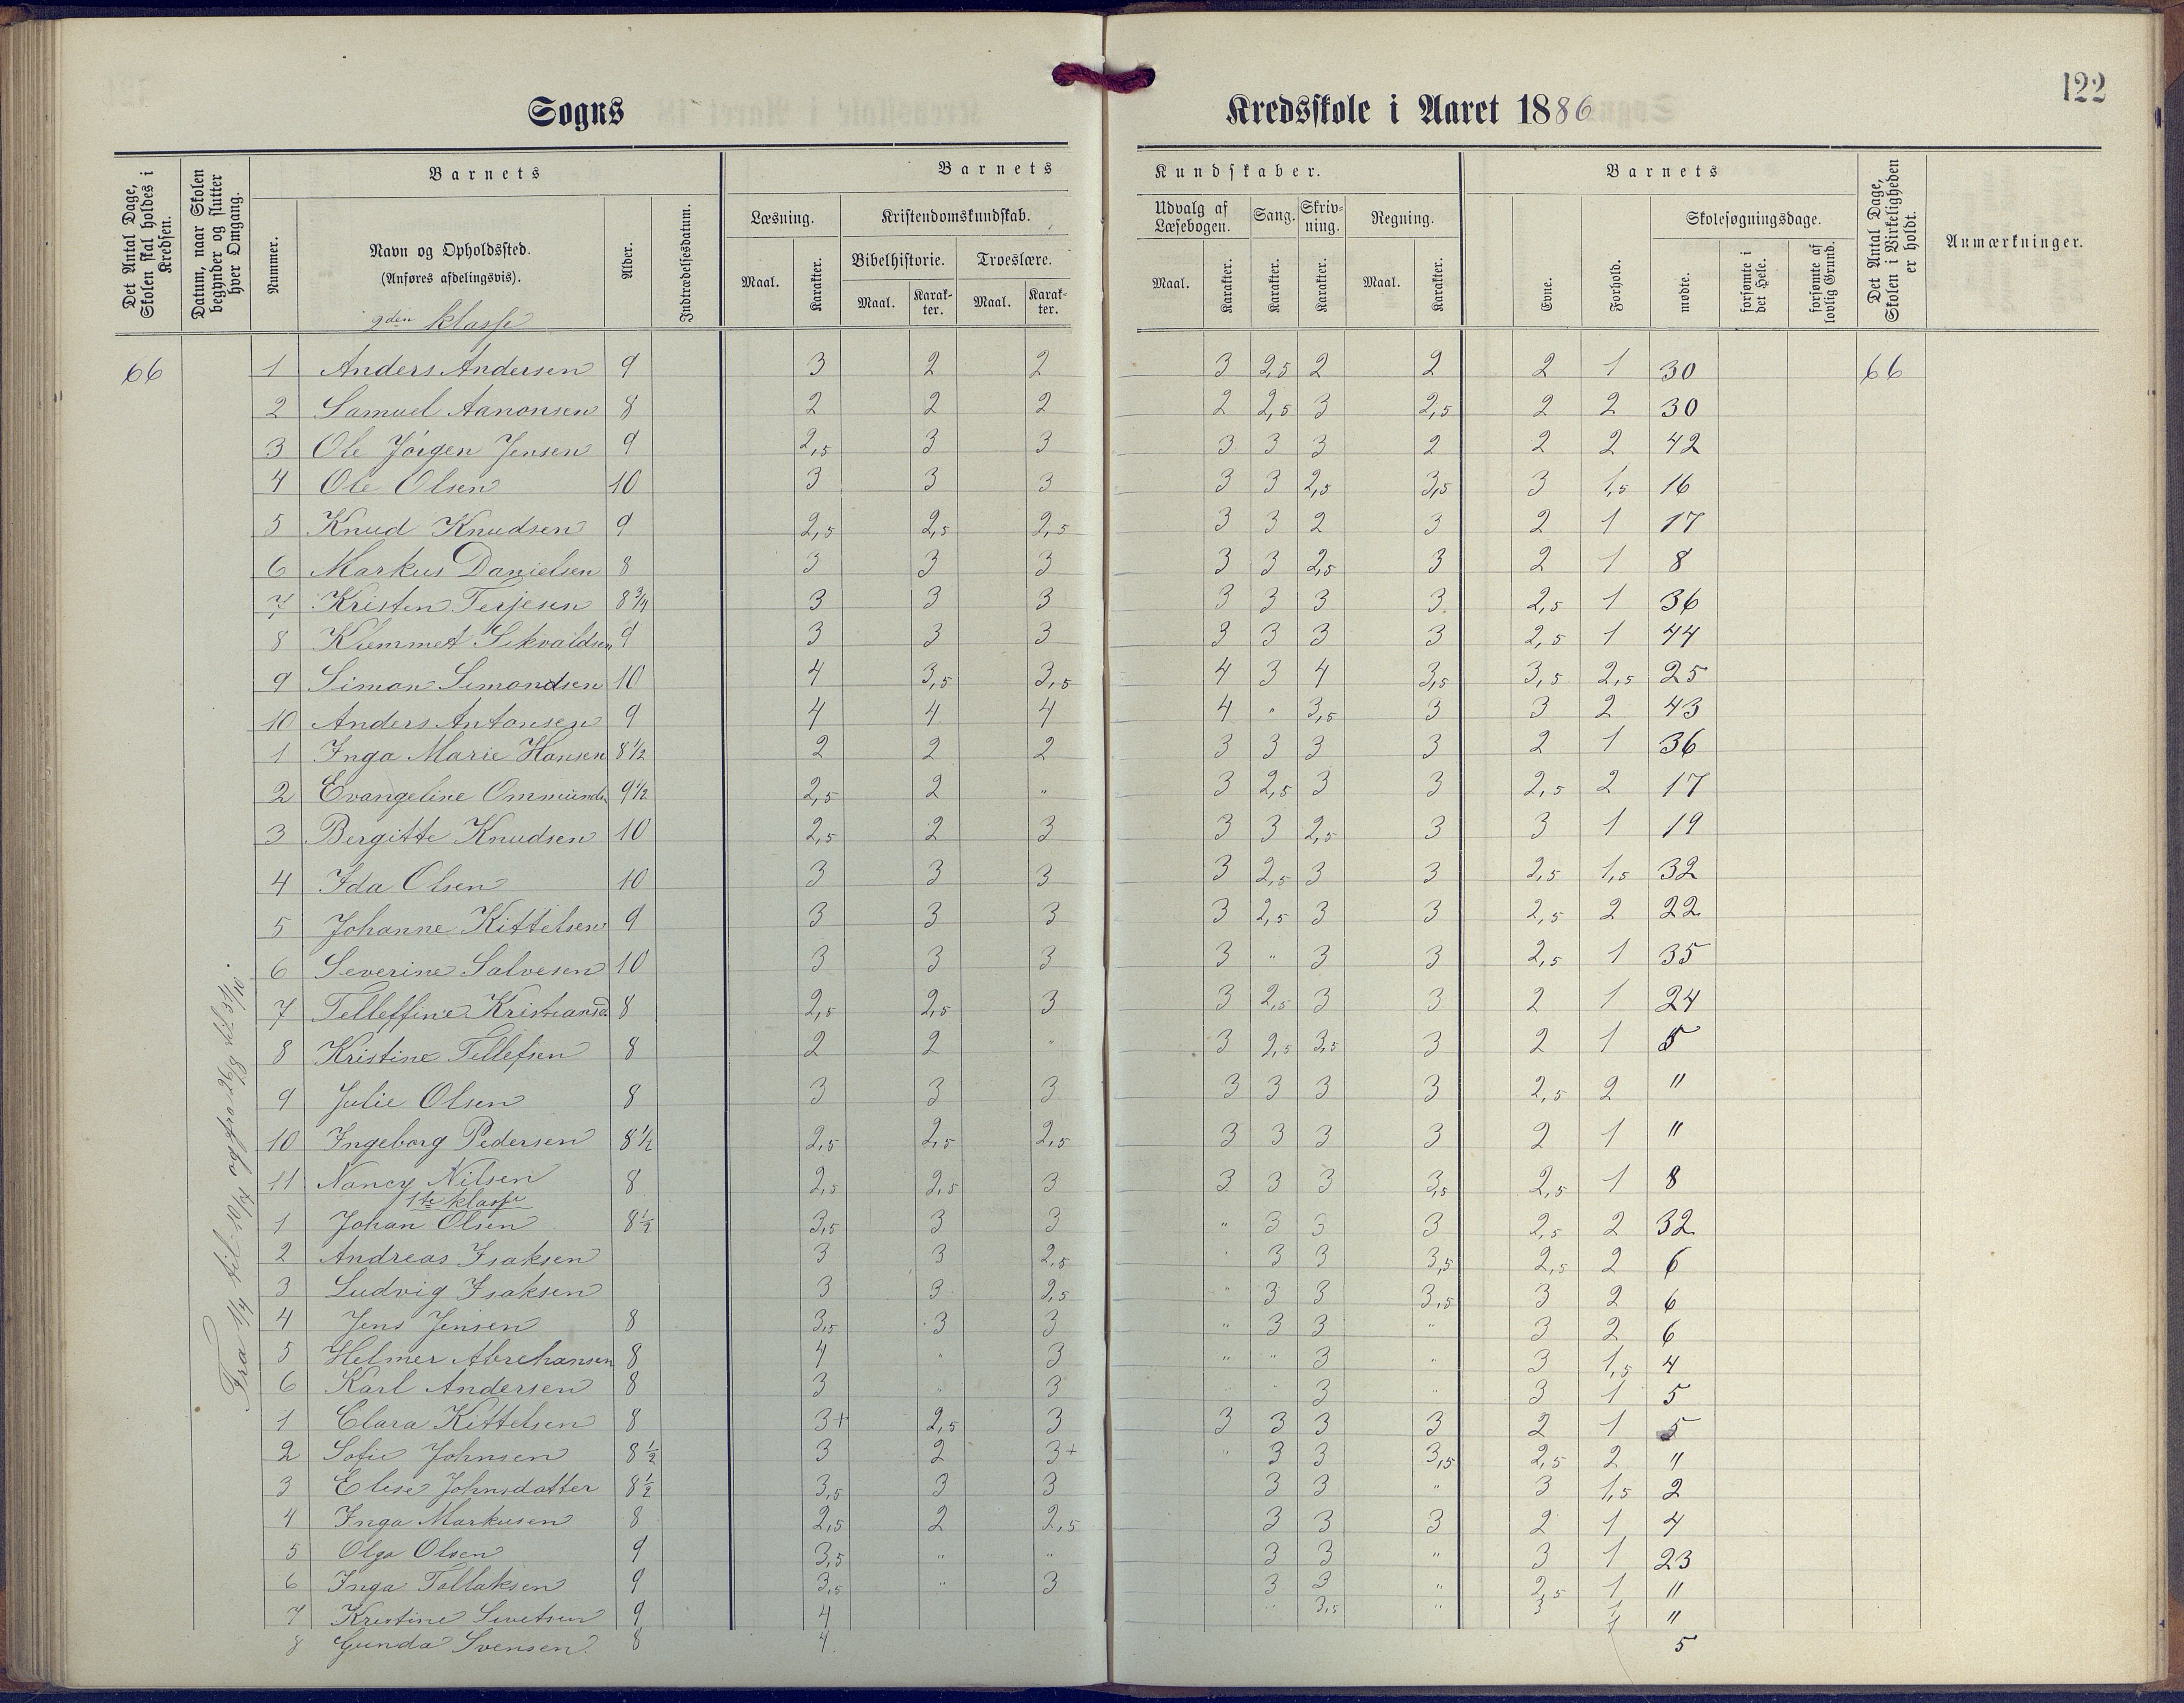 122
Sogns Kredsskole i Aaret 1886
Det Antal Dage, Skolen skal holdes i Kredsen.
Datum, naar Skolen begynder og slutter hver Omgang.
Barnets
Nummer.
Navn og Opholdssted.
(Anføres afdelingsvis).
Alder.
Indtrædelsesdatum.
Barnets Kundskaber.
Læsning.
Maal. Karakter.
Kristendomskundskab.
Bibelhistorie. Troeslære.
Maal. Karakter. Maal. Karakter.
Udvalg af Læsebogen. Sang. Skrivning. Regning.
Maal. Karakter. Karakter. Karakter. Maal. Karakter.
Barnets
Evne. Forhold.
Skolesøgningsdage.
mødte. forsømte i det Hele. forsømte af lovlig Grund.
Det Antal Dage, Skolen i Virkeligheden er holdt.
Anmærkninger.
2den klasse
66 1 Anders Andersen 9 3 2 2 3 2,5 2 2 2 1 30 66
2 Samuel Aanonsen 8 2 2 2 2 2,5 3 2,5 2 2 30
3 Ole Jörgen Jensen 9 2,5 3 3 3 3 3 2 2 2 42
4 Ole Olsen 10 3 3 3 3 3 2,5 3,5 3 1,5 16
5 Knud Knudsen 9 2,5 2,5 2,5 3 3 2 3 2 1 17
6 Markus Danielsen 8 3 3 3 3 3 2,5 3 2 1 8
7 Kristen Terjesen 8 3/4 3 3 3 3 3 3 3 2,5 1 36
8 Klemmet Sikvaldsen 9 3 3 3 3 3 3 3 2,5 1 44
9 Simon Simondsen 10 4 3,5 3,5 4 3 4 3,5 3,5 2,5 25
10 Anders Antonsen 9 4 4 4 4 " 3,5 3 3 2 43
1 Inga Marie Hansen 8 1/2 2 2 2 3 3 3 3 2 1 36
2 Evangeline Ommunds 9 1/2 2,5 2 " 3 2,5 3 3 2,5 2 17
3 Bergitte Knudsen 10 2,5 2 3 3 3 2,5 3 3 1 19
4 Ida Olsen 10 3 3 3 3 2,5 3 3 2,5 1,5 32
5 Johanne Kittelsen 9 3 3 3 3 2,5 3 3 2,5 2 22
6 Severine Salvesen 10 3 3 3 3 " 3 3 2,5 1 35
7 Telleffine Kristiansd. 8 2,5 2,5 3 3 2,5 3 3 2 1 24
8 Kristine Tellefsen 8 2 2 " 3 2,5 3,5 3 2 1 5
9 Julie Olsen 8 3 3 3 3 3 3 3 2,5 2 "
10 Ingeborg Pedersen 8 1/2 2,5 2,5 2,5 3 3 3 3 2 1 "
11 Nancy Nilsen 8 2,5 2,5 3 3 3 3 3,5 2,5 1 8
1te klasse
1 Johan Olsen 8 1/2 3,5 3 3 " 3 3 3 2,5 2 32
2 Andreas Isaksen 3 3 2,5 " 3 3 3,5 2,5 2 6
3 Ludvig Isaksen 3 3 2,5 " 3 3 3,5 3 2 6
4 Jens Jensen 8 3,5 3 3 " 3 3 " 3 2 6
5 Helmer Abrehamsen 8 4 " 3 " " 3 " 3 1,5 4
6 Karl Andersen 8 3 " 3 " " 3 " 3 1 5
1 Clara Kittelsen 8 3+ 2,5 3 3 3 3 3 2 1 5
2 Sofie Johnsen 8 1/2 3 2 3+ " 3 3 3,5 2,5 2 "
3 Elise Johnsdatter 8 1/2 3,5 3 3 3 3 " 3 1,5 2
4 Inga Markusen 8 2,5 2 2,5 3 3 3 2 1 4
5 Olga Olsen 9 3,5 " " 3 3 " 3 1 23
6 Inga Tallaksen 9 3,5 " 3 3 3 " 2,5 1 "
7 Kristine Sivetsen 9 4 " 3,5 " 3 1 "
8 Gunda Svensen 8 4 5
Fra 1/4 til 10/7 og fra 26/8 til 31/10.